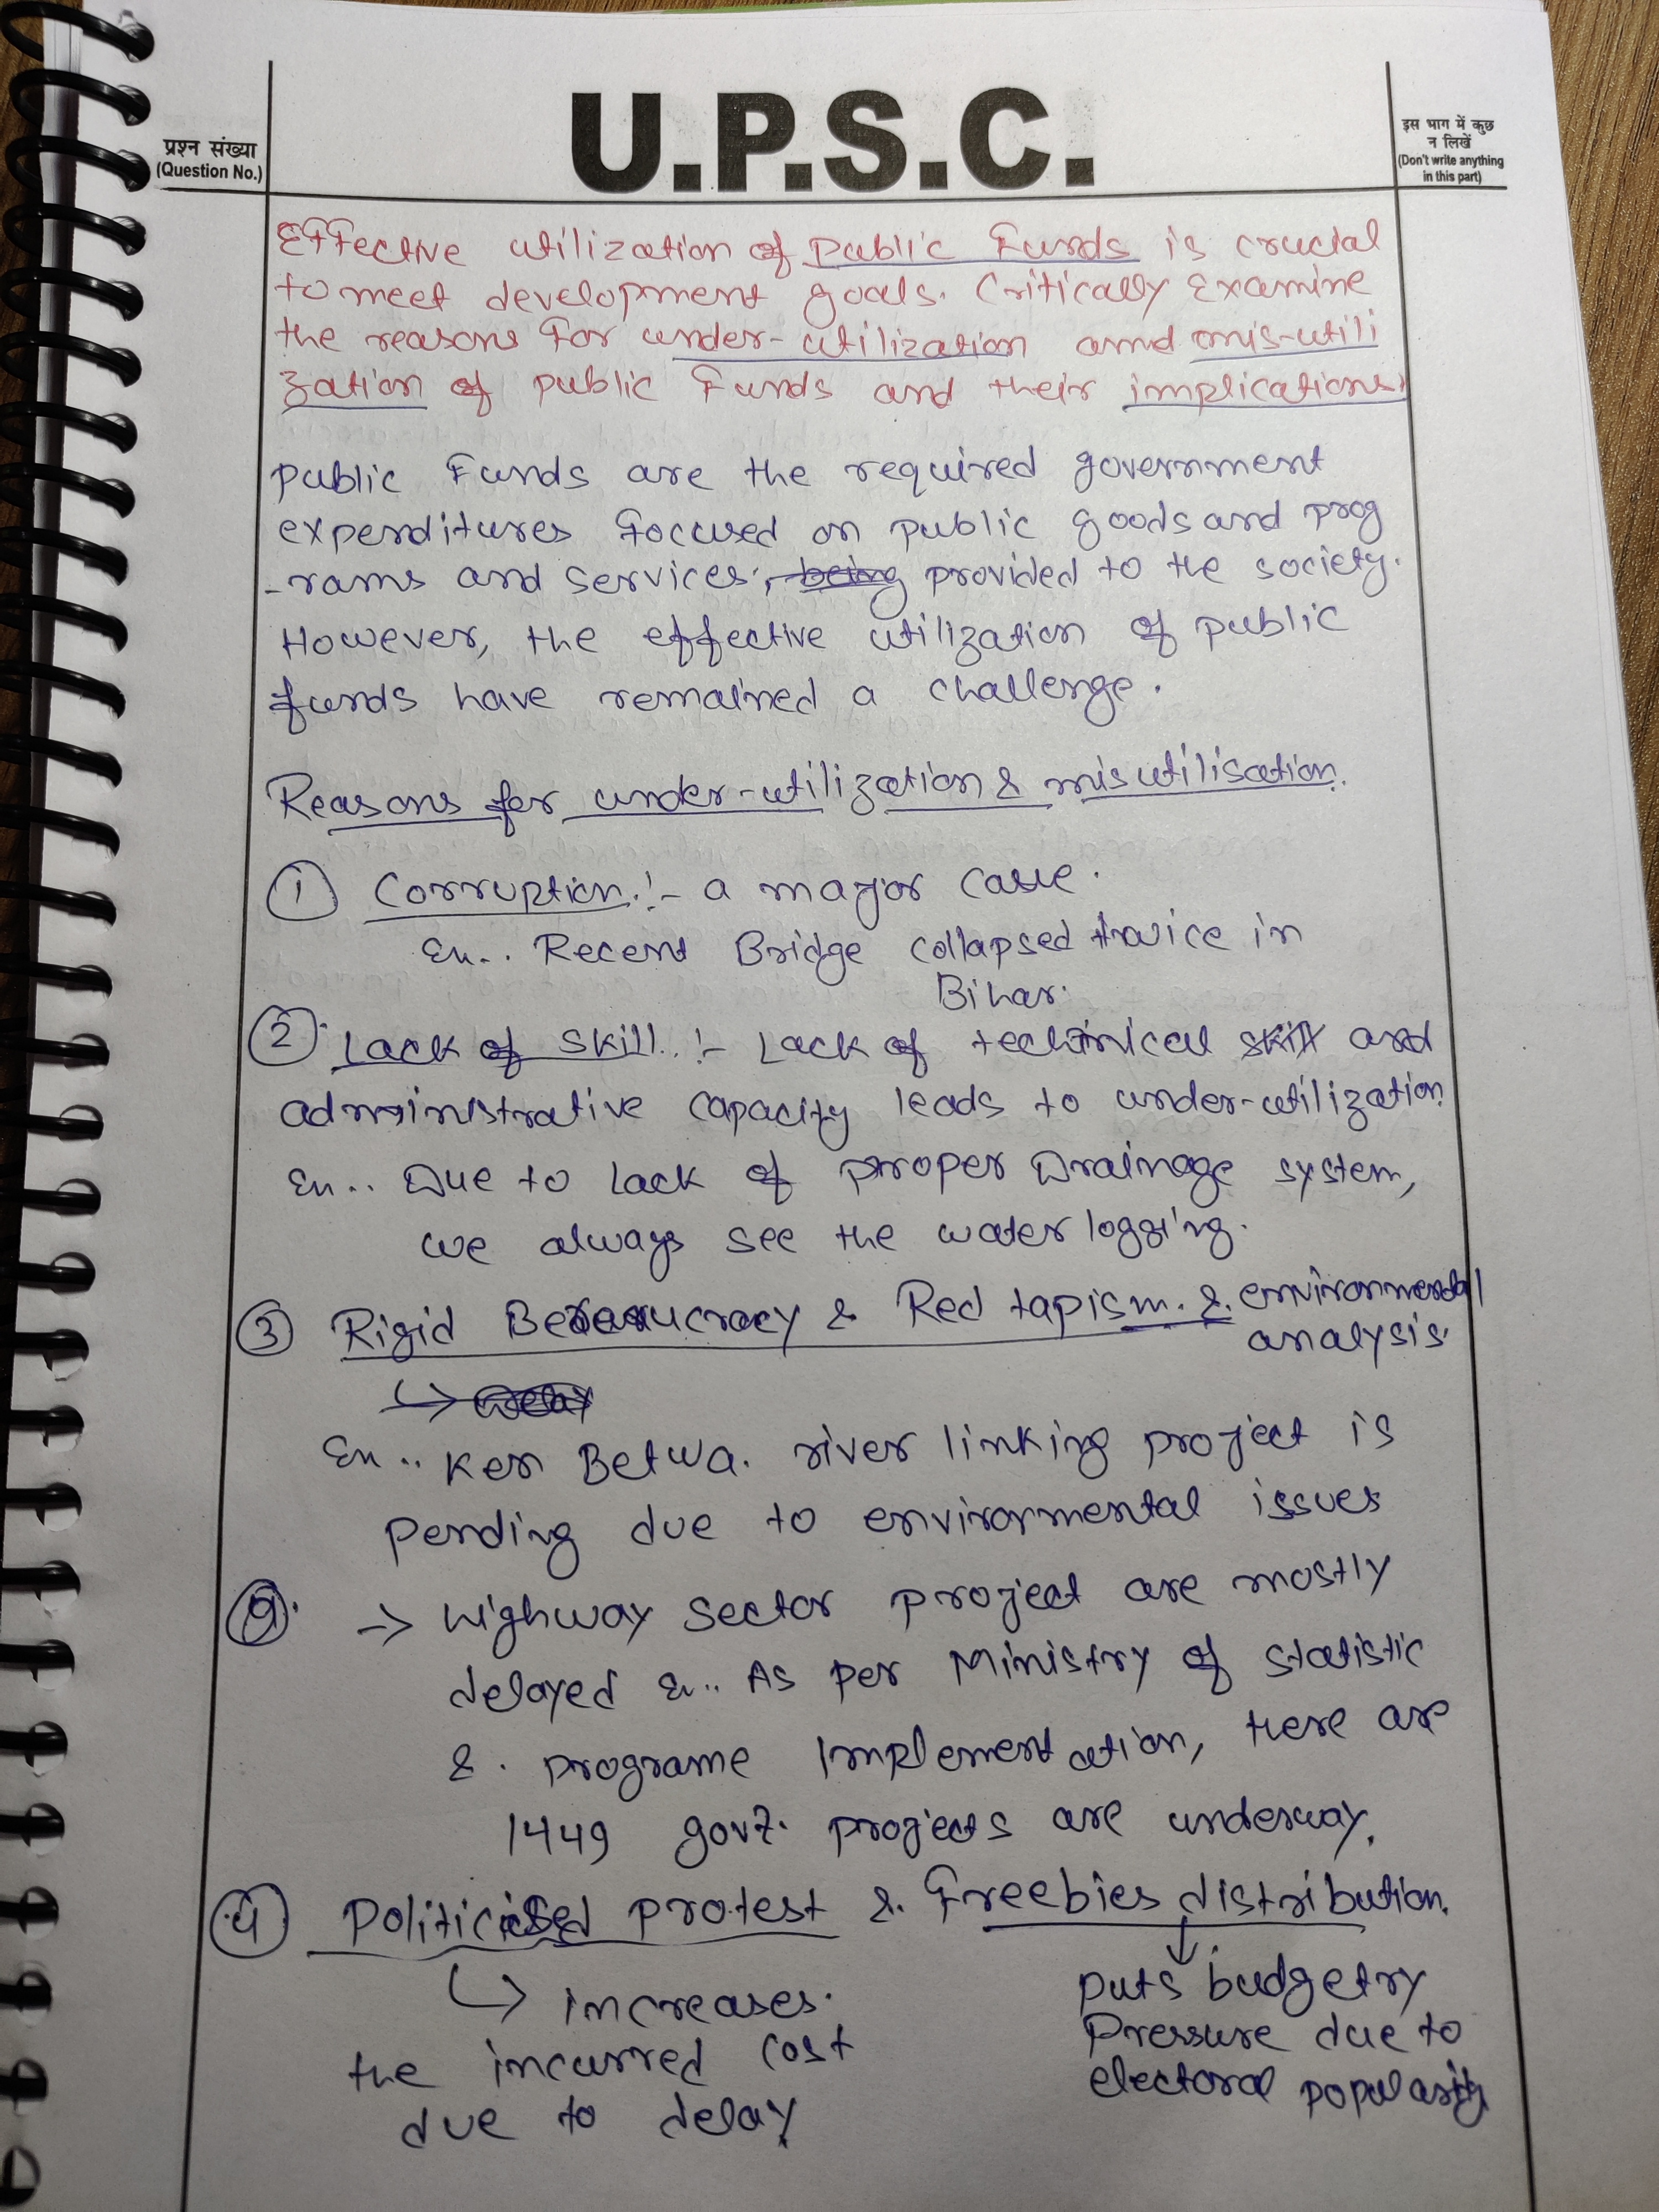 U.P.S.C.
प्रश्न संख्या
(Question No.)
इस भाग में कुछ
न लिखें
(Don't write anything
in this part)
Effective utilization of public Funds is crucial
to meet development goals. Critically Examine
the reasons for under-utilization and mis-utili
zation of public Funds and their implications.
public Funds are the required government
expenditures focused on public goods and prog
-rams and services, being provided to the society.
However, the effective utilization of public
funds have remained a challenge.
Reasons for under-utilization & misutilisation.
① Corruption :- a major case.
Ex.. Recent Bridge collapsed twice in
Bihar.
② Lack of skill :- Lack of technical skill and
administrative capacity leads to under-utilization
Ex.. Due to lack of proper Drainage system,
we always see the water logging.
③ Rigid Bereaucracy & Red tapism. & environmental
analysis.
↳ Delay
Ex.. Ken Betwa. river linking project is
pending due to environmental issues
→ highway sector project are mostly
delayed Ex.. As per Ministry of statistic
& programe Implementation, there are
1449 govt. projects are underway.
④ Politicised protest & Freebies distribution.
↳ increases.
the incurred cost
due to delay
↓
puts budgetry
Pressure due to
electoral popularity